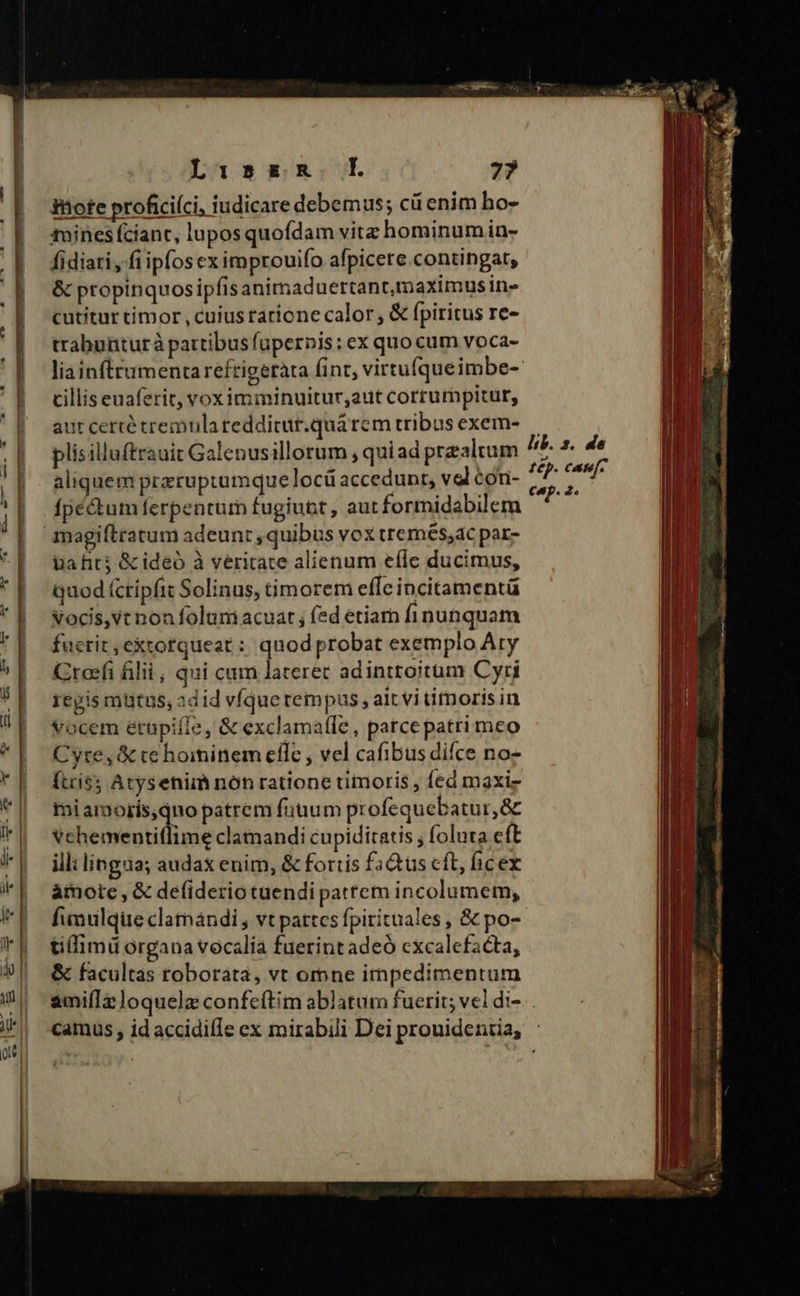 LIBER I. 77
more proficisci, iudicare debemus; cū enim ho-
mines sciant, lupos quosdam vitæ hominum in-
sidiari, si ipsos ex improuiso aspicere contingat,
& propinquos ipsis animaduertant, maximus in-
cutitur timor, cuius ratione calor, & spiritus re-
trahuntur à partibus supernis: ex quo cum voca-
lia instrumenta refrigerata sint, virtusque imbe-
cillis euaserit, vox imminuitur, aut corrumpitur,
aut certè tremula redditur. quá rem tribus exem-
plis illustrauit Galenus illorum, qui ad præaltum
aliquem præruptumque locū accedunt, vel con-
spectum serpentum fugiunt, aut formidabilem
magistratum adeunt, quibus vox tremēs, ac par-
ua fit; & ideò à veritate alienum esse ducimus,
quod scripsit Solinus, timorem esse incitamentū
vocis, vt non solum acuat, sed etiam si nunquam
fuerit, extorqueat: quod probat exemplo Aty
Crœsi filii, qui cum lateret ad introitum Cyri
regis mutus, ad id vsque tempus, ait vi timoris in
vocem erupisse, & exclamasse, parce patri meo
Cyre, & te hominem esse, vel casibus disce no-
stris; Atys enim non ratione timoris, sed maxi-
mi amoris, quo patrem suum prosequebatur, &
vehementissime clamandi cupiditatis, soluta est
illi lingua; audax enim, & fortis factus est, sic ex
amore, & desiderio tuendi patrem incolumem,
simulque clamandi, vt partes spirituales, & po-
tissimū organa vocalia fuerint adeò excalefacta,
& facultas roborata, vt omne impedimentum
amissæ loquelæ confestim ablatum fuerit; vel di-
camus, id accidisse ex mirabili Dei prouidentia,
lib. 2. de
tēp. caus.
cap. 2.